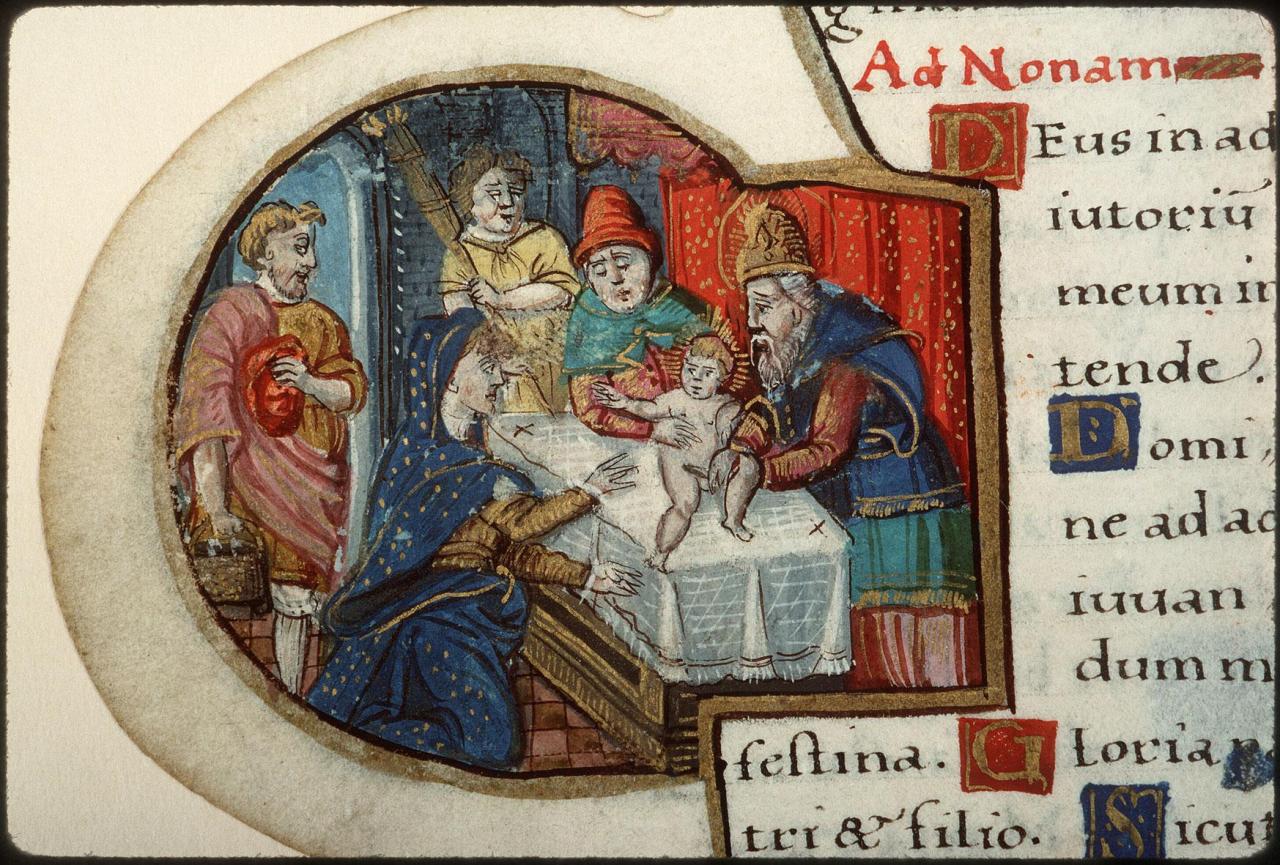 Ad Nonam
DEus in ad
iutoriū
meum in
tende.
Domi,
ne ad ad
iuuan
dum m
festina. Gloria pa
tri & filio. Sicut